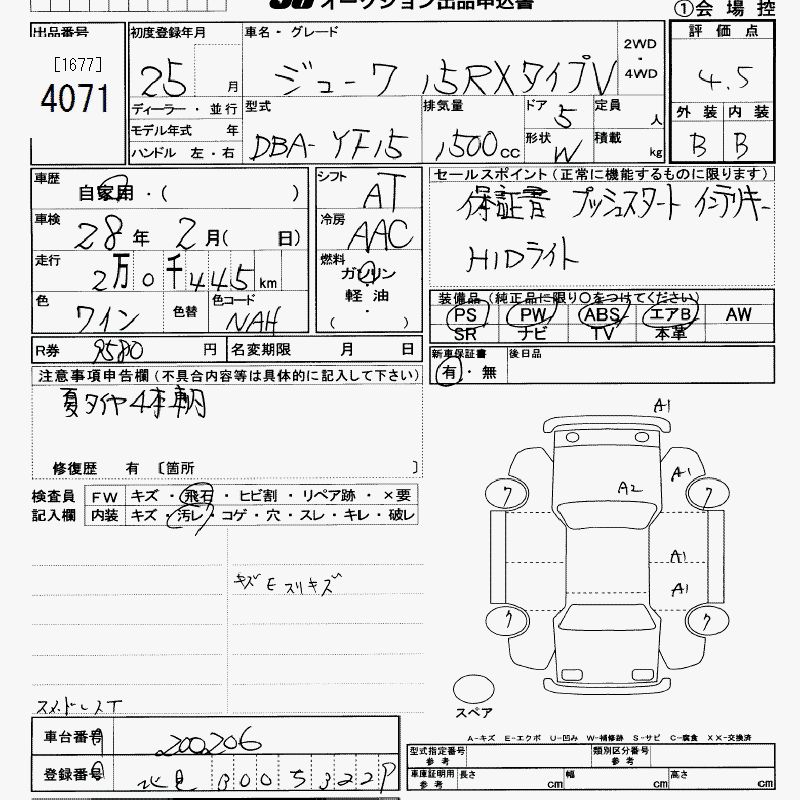 オークション出品申込書
①会 場 控
出品番号
[1677]
4071
初度登録年月
25 月
ディーラー ・ 並行
モデル年式 年
ハンドル 左 ・ 右
車名 ・ グレード
ジューク 15RXタイプV
2WD
・
4WD
型式
DBA- YF15
排気量
1500cc
ドア
5
形状
W
定員
人
積載
kg
評 価 点
4.5
外 装 内 装
B B
車歴
自家用 ・ ( )
車検
28 年 2 月( 日)
走行
2万0千445 km
色
ワイン
色替
色コード
NAH
シフト
AT
冷房
AAC
燃料
ガソリン
・
軽 油
( )
セールスポイント (正常に機能するものに限ります)
保証書 プッシュスタート インテリキー
HIDライト
装備品 (純正品に限り〇をつけてください)
PS PW ABS エアB AW
SR ナビ TV 本革
R券 9580 円 名変期限 月 日
新車保証書
有 ・ 無
後日品
注意事項申告欄 (不具合内容等は具体的に記入して下さい)
夏タイヤ4本車内
修復歴 有 〔箇所 〕
検査員
記入欄
FW キズ ・ 飛石 ・ ヒビ割 ・ リペア跡 ・ ×要
内装 キズ ・ 汚レ ・ コゲ ・ 穴 ・ スレ ・ キレ ・ 破レ
キズ E スリキズ
A1
A2 A1
ワ ワ
A1
A1
ワ ワ
スペア
A-キズ E-エクボ U-凹み W-補修跡 S-サビ C-腐食 XX-交換済
車台番号
200206
登録番号
B 0 0 5 3 2 2 P
型式指定番号
参 考
類別区分番号
参 考
車庫証明用
参 考
長さ cm 幅 cm 高さ cm